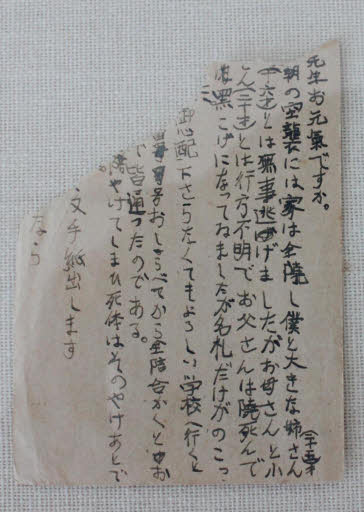 先生お元氣ですか。
朝の空襲には家は全焼し僕と大きな姉さん
十六才とは無事逃げましたがお母さんと小
さん(二十才)とは行方不明でお父さんは焼死んで
黒こげになってねましたが名札だけがのこっ
心配下さらなくてもよろしい学校へ行くと
番号おしらべてから全部合かくとゆお
で皆通ったのである。
やけてしまひ死体はそのやけあとで
又手紙出します
なら